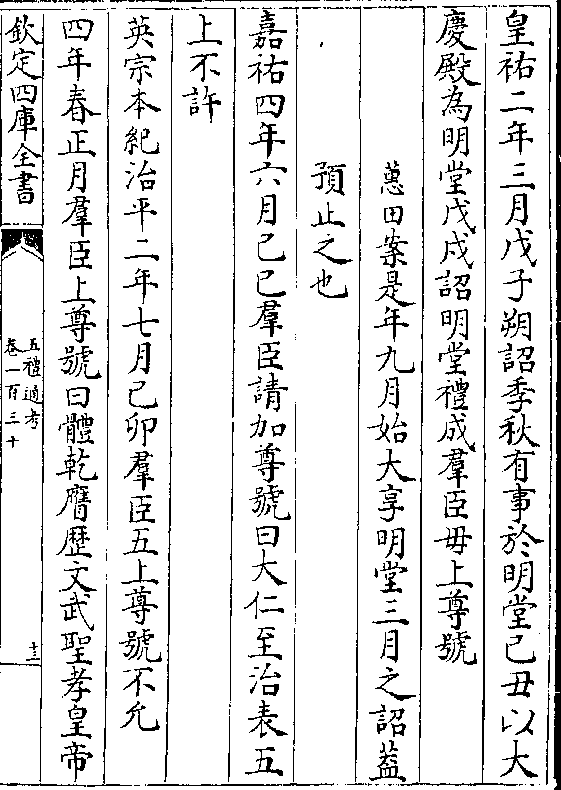 皇祐二年三月戊子朔詔季秋有事於明堂己丑以大
慶殿為明堂戊戌詔明堂禮成羣臣毋上尊號
蕙田案是年九月始大享明堂三月之詔葢
預止之也
嘉祐四年六月己巳羣臣請加尊號曰大仁至治表五
上不許
英宗本紀治平二年七月己卯羣臣五上尊號不允
四年春正月羣臣上尊號曰體乾膺歴文武聖孝皇帝
欽定四庫全書
五禮通考
卷一百三十
十三